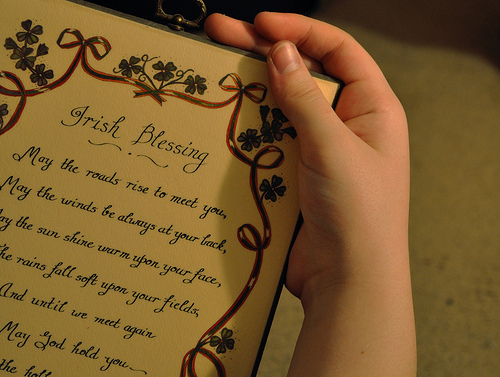 Irish Blessing
May the roads rise to meet you,
May the winds be always at your back,
ay the sun shine warm upon your face,
he rains fall soft upon your fields,
And until we meet again
May God hold you
the holl